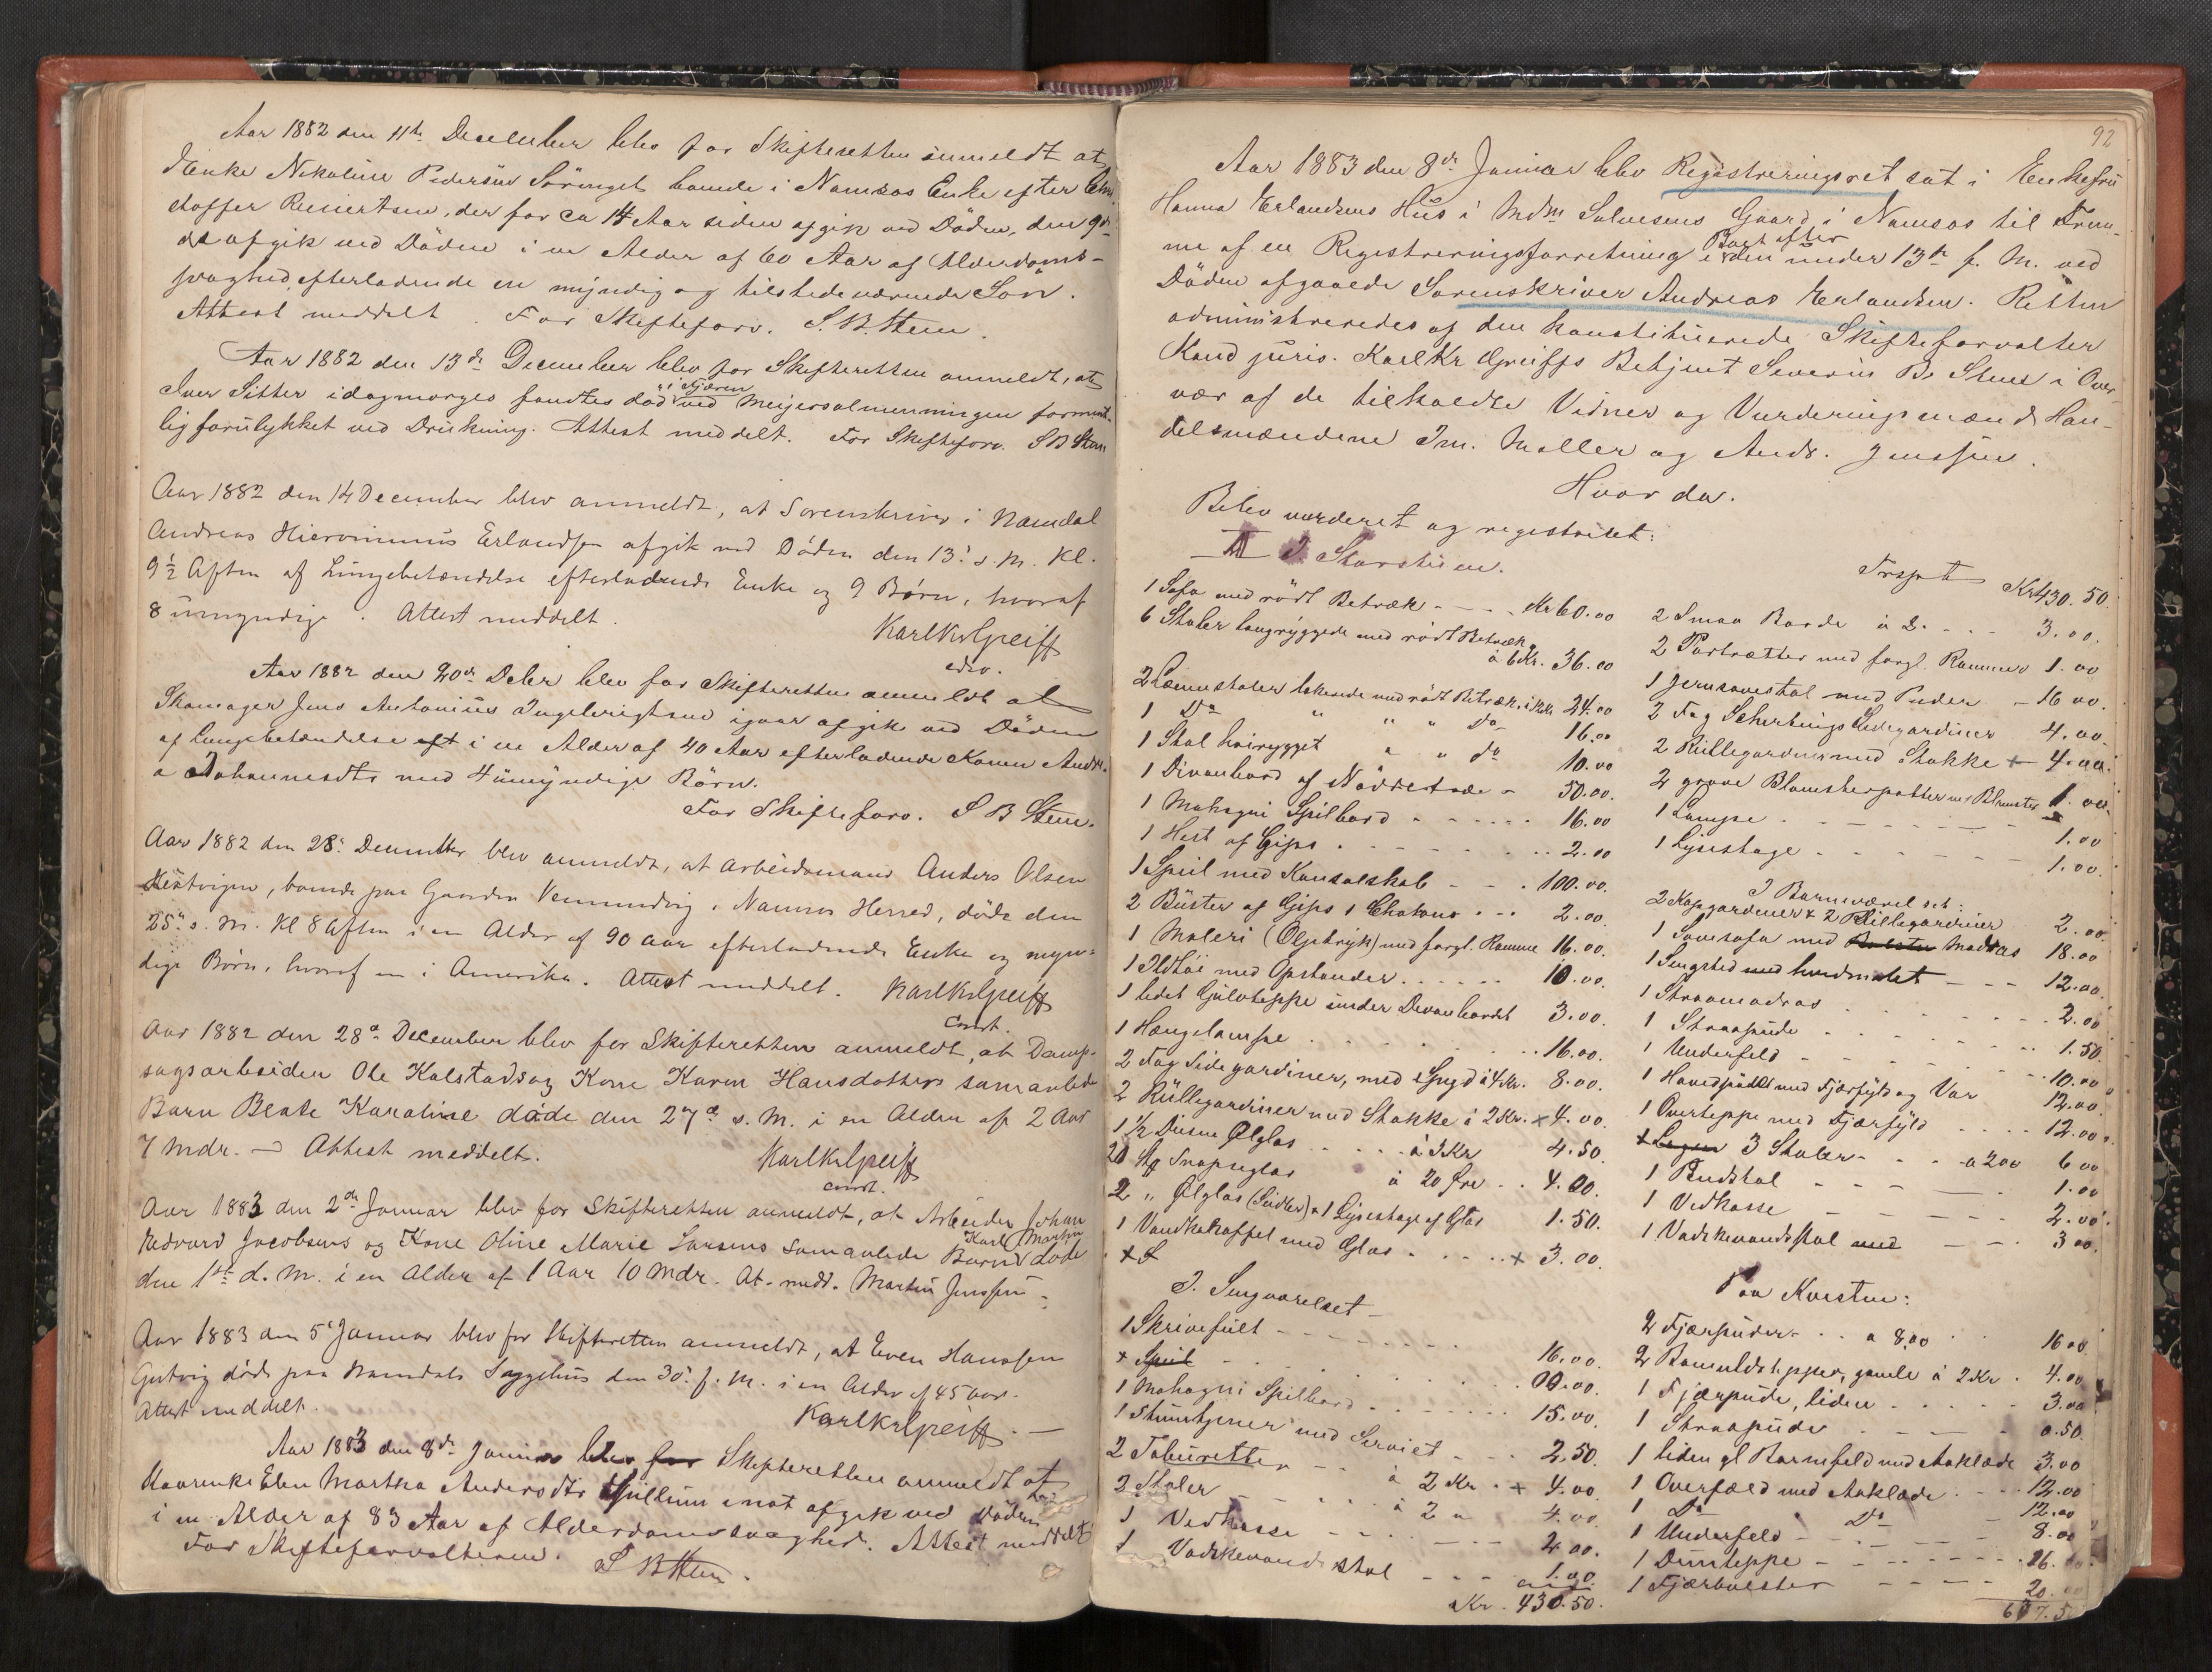 Aar 1882 den 11te December blev for Skifteretten anmeldt at
Enke Nekoline Pedersen Sörenget boende i Namsos Enke efter Chri
stoffer Reinertsen, der for ca 14 Aar siden afgik ved Döden, den 9de
ds afgik ved Döden i en Alder af 60 Aar af Alderdoms-
svaghed, efterladende en myndig og tilstedeværende Sön.
Attest meddelt. For Skifteforv. S. B. Steen
Aar 1882 den 13de December blev for Skifteretten anmeldt, at
Iver Sitter idagmorges fandtes död i Fjæren ved Meijersalmenningen forment-
lig forulykket ved Drukning. Attest meddelt. For Skifteforv. S B Steen
Aar 1882 den 14 December blev anmeldt, at Sorenskriver i Namdal
Andreas Hieronimus Erlandsen afgik ved Døden den 13' s. M. Kl.
9½ Aften af Lungebetændelse efterladende Enke og 9 Børn, hvoraf
8 umyndige. Attest meddelt.
Karl Kr Greiff
Aar 1882 den 20de Decbr blev for Skifteretten anmeldt at
Skomager Jens Antonius Ingebrigtsen igaar afgik ved Döden
af Lungebetændelse eft i en Alder af 40 Aar efterladende Konen Andre-
a Johannesdtr med 4 umyndige Börn.
For Skifteforv. S B Steen.
Aar 1882 den 28' December blev anmeldt, at Arbeidsmand Anders Olsen
boende paa Gaarden Vemundvig i Namsos Herred, døde den
25' s. M. Kl 8 Aften i en Alder af 90 Aar efterladende Enke og myn-
dige Børn, hvoraf en i Amerika. Attest meddelt. Karl Kr Greiff
const.
Aar 1882 den 28de December blev for Skifteretten anmeldt, at Damp-
sagsarbeider Ole Kalstad og Kone Karen Hansdatters samavlede
Barn Beate Karoline døde den 27de s. M. i en Alder af 2 Aar
7 Mdr. — Attest meddelt.
Karl Kr Greiff
const.
Aar 1883 den 2den Januar blev for Skifteretten anmeldt, at Arbeider Johan
Edvard Jacobsens og Kone Oline Marie Larsens samavlede Barn Karl Martin døde
den 1ste d. M. i en Alder af 1 Aar 10 Mdr. At. medd. Martin Jenssen
Aar 1883 den 5' Januar blev for Skifteretten anmeldt, at Even Hansen
Gutvig døde paa Namdals Sygehus den 30' f. M. i en Alder af 45 Aar.
Attest meddelt.
Karl Kr Greiff. —
Aar 1883 den 8de Januar blev for Skifteretten anmeldt at
Kaarenke Elen Martha Andersdtr inat afgik ved Döden
i en Alder af 83 Aar af Alderdomssvaghed. Attest meddelt
For Skifteforvalteren. S B Steen.
92
Aar 1883 den 8de Januar blev Registreringsret sat i Enkefru
Hanna Erlandsens Hus i Mdm Salvesens Gaard i Namsos til Frem-
me af en Registreringsforretning i Boet efter den under 13de f. M. ved
Döden afgaaede Sorenskriver Andreas Erlandsen. Retten
administreredes af den konstituerede Skifteforvalter
Kand juris. Karl Kr Greiffs Betjent Severin B. Steen i Over-
vær af de tilkaldte Vidner og Vurderingsmænd Han-
delsmændene Im. Møller og Andr. Jenssen.
Hvorda.
Blev vurderet og registreret:
I Storstuen.
1 Sofa med rödt Betræk - - - Kr 60.00
6 Stoler langryggede med rödt Betræk
à 6 Kr. 36.00
2 Lænestoler lekende med rödt Betræk à 24.00
1 Do " " " Do 16.00
1 Stol höirygget " " do 10.00
1 Divanbord af Nöddetræ - 50.00.
1 Mahogni Spilbord . . . . . 16.00
1 Hest af Gips . - - - - - 2.00
1 Speil med Konsolskab - - . 100.00.
2 Büster af Gips 1 Chatons . . . 2.00
1 Maleri (Oljetryk) med forgl. Ramme 16.00.
1 Ildtöi med Opstander . . . . . 10.00.
1 lidet Gulvteppe under Divanbordet 3.00.
1 Hængelampe . . . . . . 16.00.
2 Fag Sidegardiner, med Spyd à 4 Kr. 8.00.
2 Rullegardiner med Stokke à 2 Kr. + 4.00.
1½ Dusin Ølglas - - - à 3 Kr 4.50.
20 Stk Snapseglas à 20 Øre . . 4.00.
2 " Ølglas (Seidler) + 1 Lysestage af Glas 1.50.
1 Vandkaraffel med Glas . . . . + 3.00.
I. Sengværelset
1 Skrivepult - - - - - - 16.00.
+ Speil . . . . . . 00.00.
1 Mahogni Spilbord . . . . . 15.00.
1 Stumtjener med Serviet - - 2.50.
2 Taburetter - - à 2 Kr . + 4.00
2 Stoler - - - à 2 " 4.00.
1 Vedkasse - - - - - 2.00.
1 Vadskevandsstol - - - 1.00.
Kr. 430.50.
Trspt Kr 430.50.
2 Smaa Borde à 2. - - - 3.00.
2 Portrætter med forgl. Rammer 1.00
1 Jernsovestol med Puder - 16 00.
2 Fag Schertings Sidegardiner 4.00.
2 Rullegardiner med Stokke + 4.00.
2 grove Blomsterpotter m/ Blomster 1.00.
1 Lampe . - - - - - - 1.00
1 Lysestage . - - - - - - 1.00.
I Barneværelset:
2 Kapgardiner + 2 Rullegardiner 2.00.
1 Sovesofa med Madras 18.00
1 Sengsted - - - 12.00.
1 Straamadras . . . . . . 2.00
1 Straapude . . . . . . 1.50
1 Underfeld - - - - - - 10.00
1 Hovedpude med Fjærfyld og Var 12.00.
1 Overteppe med Fjærfyld . . . . 12.00.
3 Stoler - - - à 200 6 00
1 Budstol - - - - - 1.00
1 Vedkasse - - - - - 2.00.
1 Vadskevandsstol med - - - 3 00.
Paa Kvisten:
2 Fjærpuder - . . à 8,00 16 00
2 Bomuldstepper, gamle à 2 Kr . 4.00
1 Fjærpude, liden . . . . . 3.00
1 Straapude . - - - 0.50.
1 liden gl Barnefeld med Aaklæde 3.00
1 Overfæld med Aaklæde . . . 12.00
1 Do Do - 12.00
1 Underfeld - - - - 8.00
1 Dunteppe - - - - - - 26.
1 Fjærbolster - - - - 20.